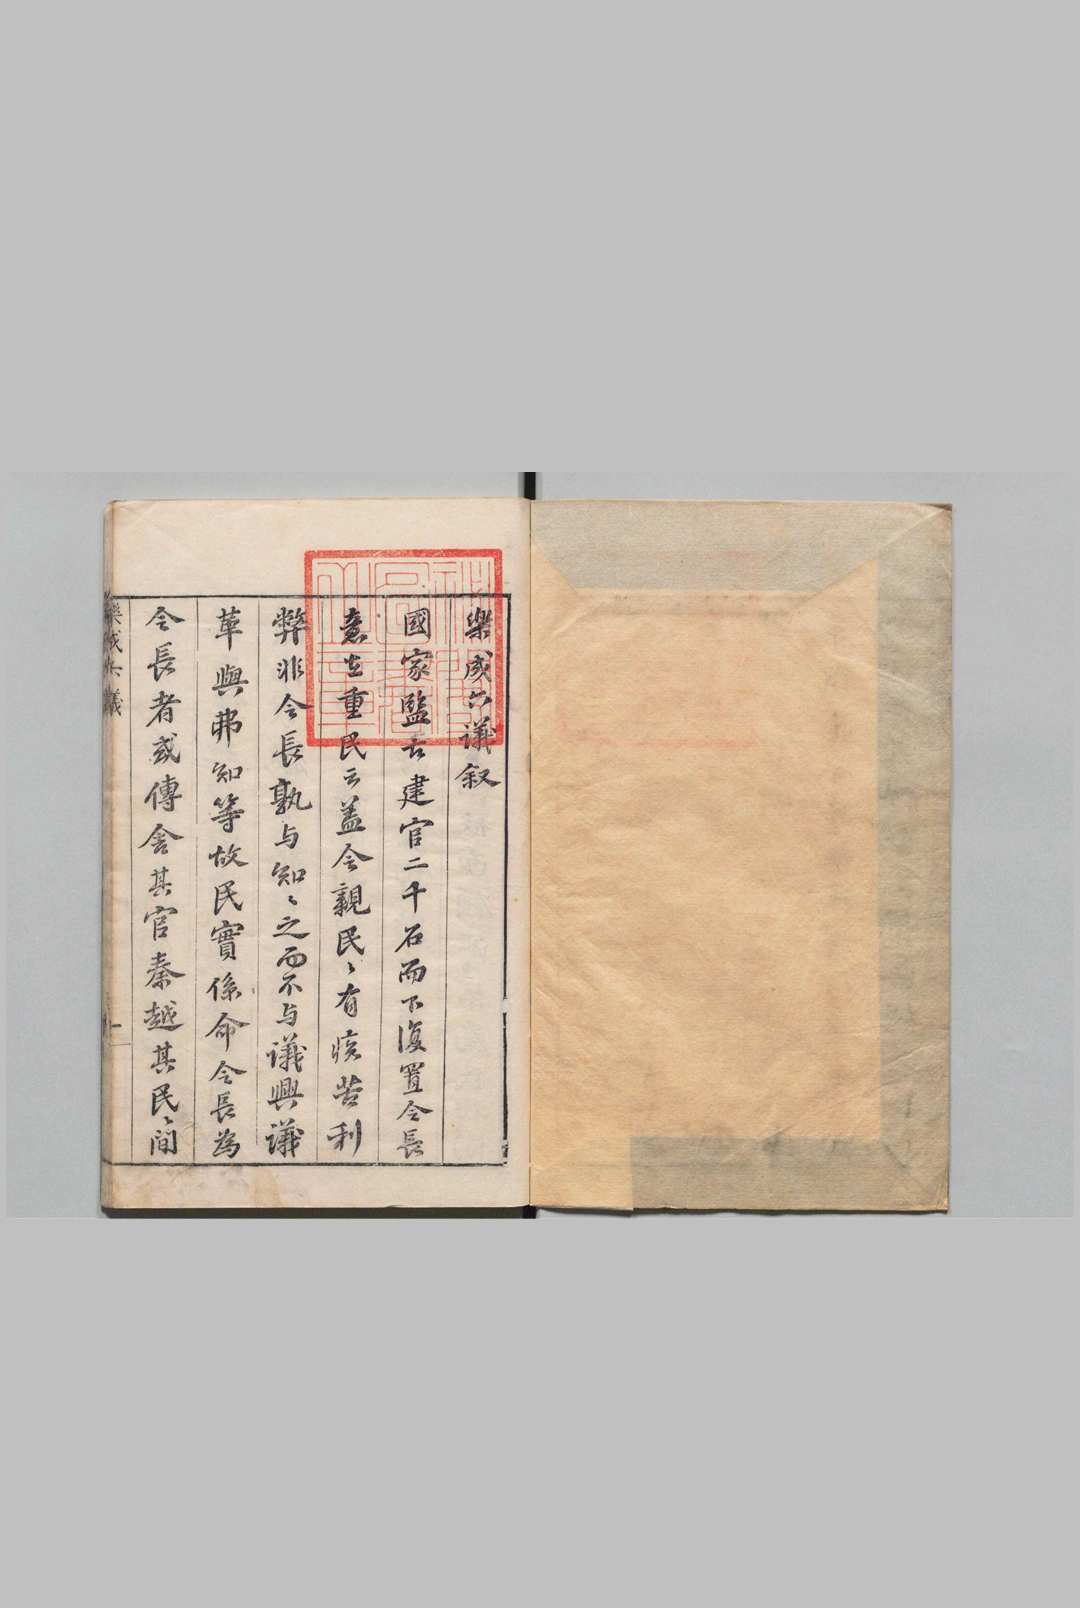 樂成六議叙
國家監古建官二千石而下復置令長
意在重民云盖令親民〻有疾苦利
弊非令長孰与知〻之而不与議興議
革與弗知等故民實係命令長為
令長者或傳舍其官秦越其民〻間
樂成六議